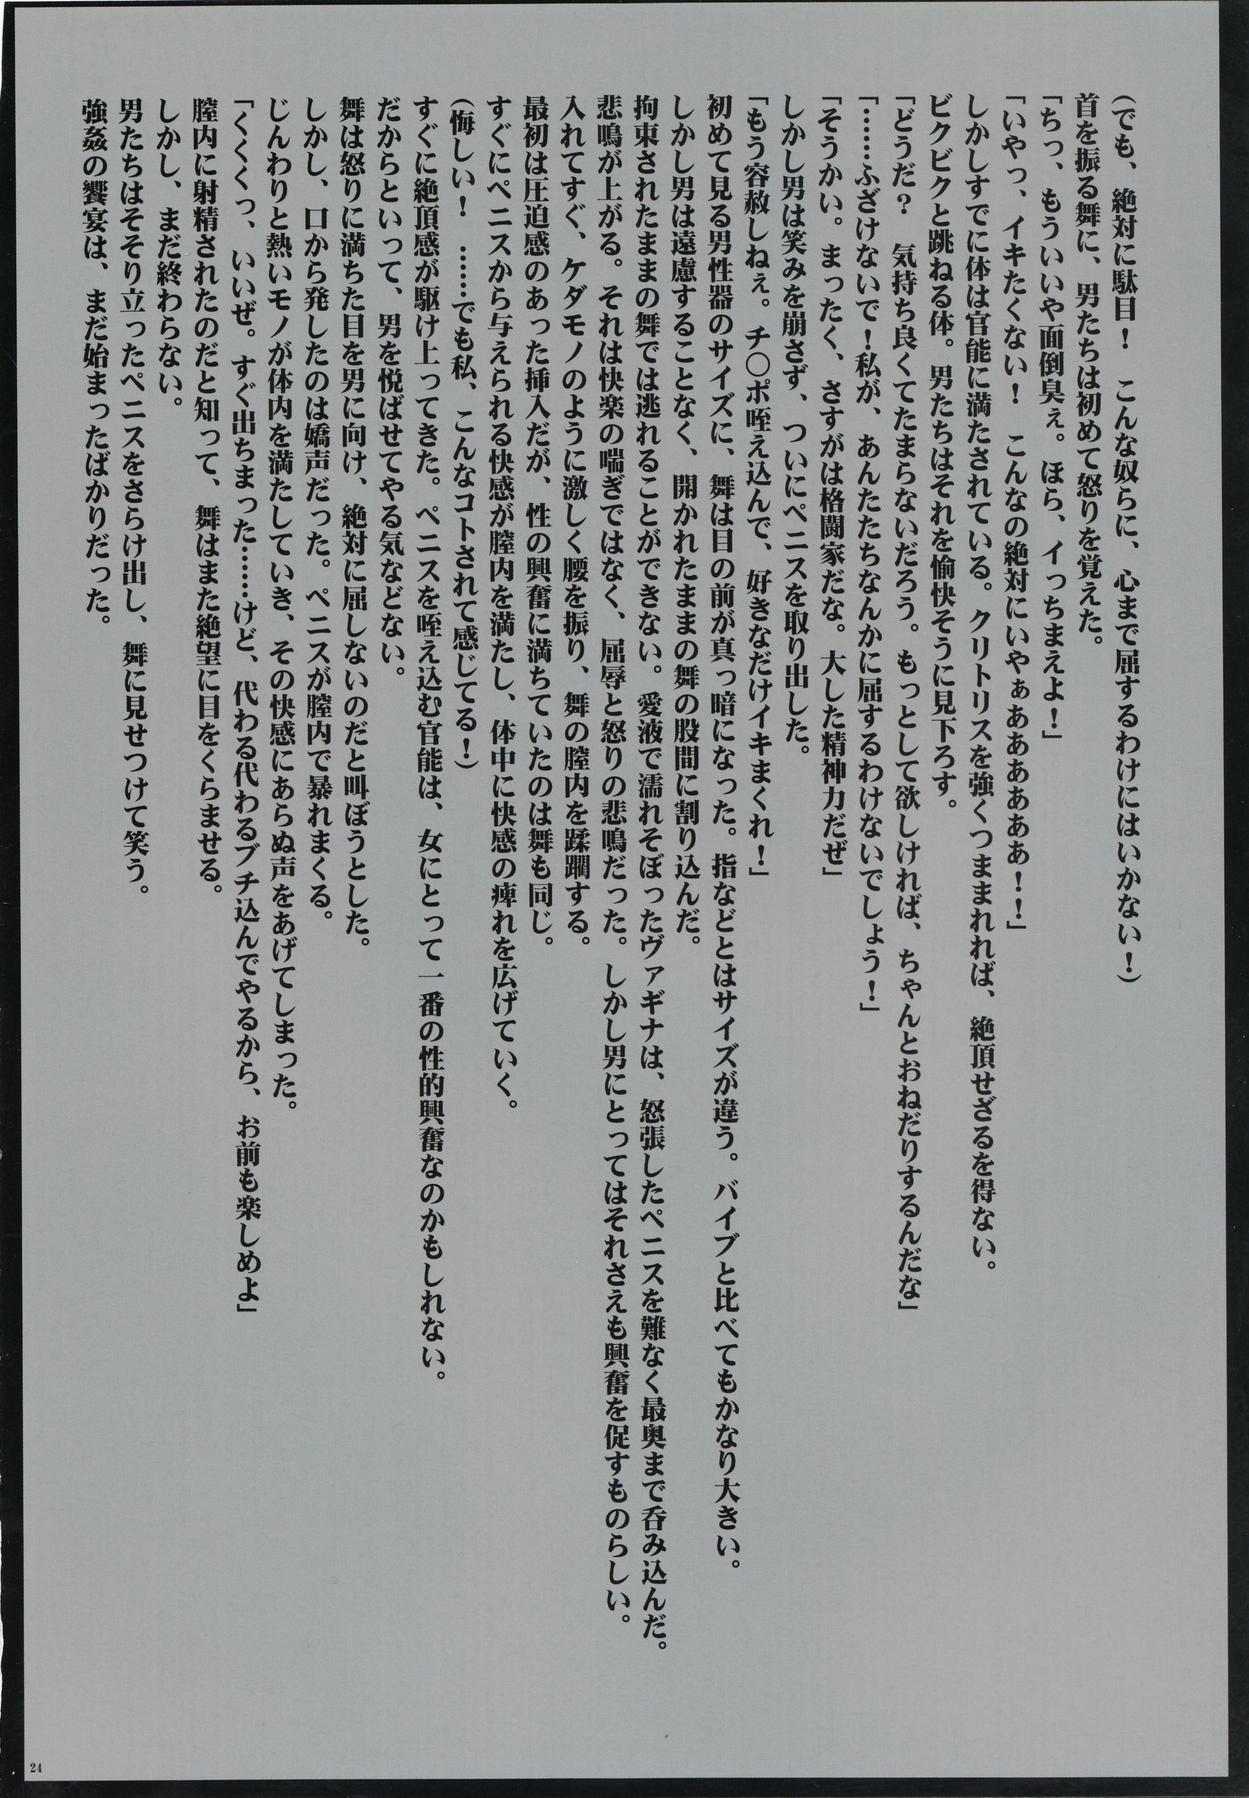 (でも、絶対に駄目！　こんな奴らに、心まで屈するわけにはいかない！)
首を振る舞に、男たちは初めて怒りを覚えた。
「ちっ、もういいや面倒臭ぇ。ほら、イっちまえよ！」
「いやっ、イキたくない！　こんなの絶対にいやぁああああああ！！」
しかしすでに体は官能に満たされている。クリトリスを強くつままれれば、絶頂せざるを得ない。
ビクビクと跳ねる体。男たちはそれを愉快そうに見下ろす。
「どうだ？　気持ち良くてたまらないだろう。もっとして欲しければ、ちゃんとおねだりするんだな」
「……ふざけないで！私が、あんたたちなんかに屈するわけないでしょう！」
「そうかい。まったく、さすがは格闘家だな。大した精神力だぜ」
しかし男は笑みを崩さず、ついにペニスを取り出した。
「もう容赦しねぇ。チ〇ポ咥え込んで、好きなだけイキまくれ！」
初めて見る男性器のサイズに、舞は目の前が真っ暗になった。指などとはサイズが違う。バイブと比べてもかなり大きい。
しかし男は遠慮することなく、開かれたままの舞の股間に割り込んだ。
拘束されたままの舞では逃れることができない。愛液で濡れそぼったヴァギナは、怒張したペニスを難なく最奥まで呑み込んだ。
悲鳴が上がる。それは快楽の喘ぎではなく、屈辱と怒りの悲鳴だった。しかし男にとってはそれさえも興奮を促すものらしい。
入れてすぐ、ケダモノのように激しく腰を振り、舞の膣内を蹂躙する。
最初は圧迫感のあった挿入だが、性の興奮に満ちていたのは舞も同じ。
すぐにペニスから与えられる快感が膣内を満たし、体中に快感の痺れを広げていく。
(悔しい！　……でも私、こんなコトされて感じてる！)
すぐに絶頂感が駆け上ってきた。ペニスを咥え込む官能は、女にとって一番の性的興奮なのかもしれない。
だからといって、男を悦ばせてやる気などない。
舞は怒りに満ちた目を男に向け、絶対に屈しないのだと叫ぼうとした。
しかし、口から発したのは嬌声だった。ペニスが膣内で暴れまくる。
じんわりと熱いモノが体内を満たしていき、その快感にあらぬ声をあげてしまった。
「くくくっ、いいぜ。すぐ出ちまった……けど、代わる代わるブチ込んでやるから、お前も楽しめよ」
膣内に射精されたのだと知って、舞はまた絶望に目をくらませる。
しかし、まだ終わらない。
男たちはそそり立ったペニスをさらけ出し、舞に見せつけて笑う。
強姦の饗宴は、まだ始まったばかりだった。
24